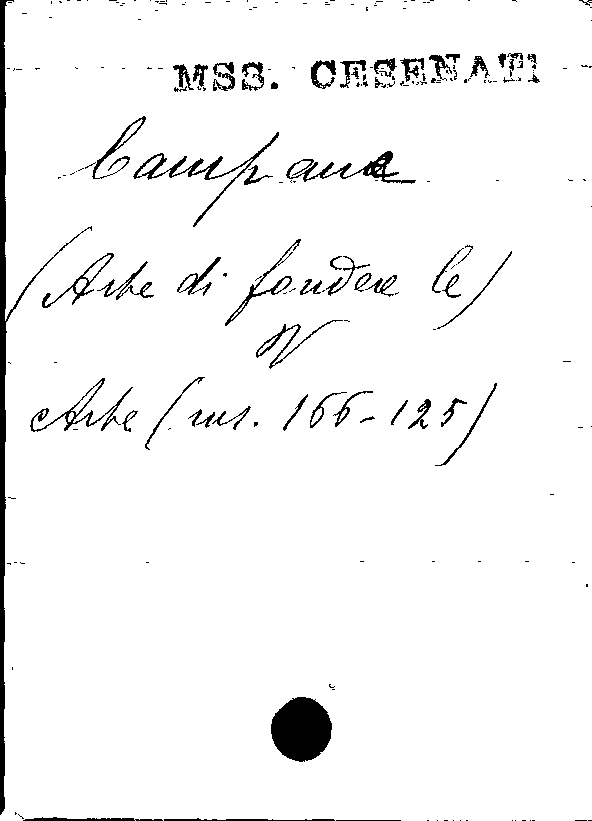 MSS. CESENATI
Campane
(Arte di fondere le)
V
Arte (ms. 166-125)